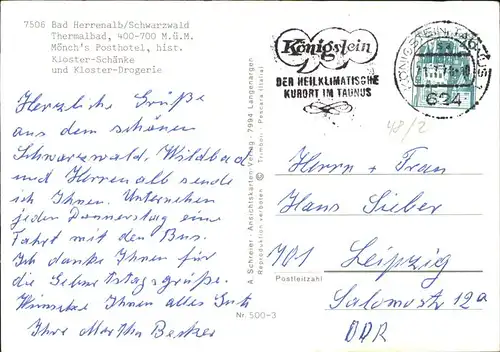 7506 Bad Herrenalb/Schwarzwald
Thermalbad, 400-700 M.ü.M.
Mönch's Posthotel, hist.
Kloster-Schänke
und Kloster-Drogerie
Herzliche Grüße
aus dem schönen
Schwarzwald. Wildbad
und Herrenalb sende
ich Ihnen. Unternehmen
jeden Donnerstag eine
Fahrt mit den Bus.
Ich danke Ihnen für
die Geburtstagsgrüße.
Wünsche Ihnen alles Gute
Ihre Martha Becker
A. Schreier, Ansichtskarten-Verlag, 7994 Langenargen
Reproduktion verboten
Pescara (Italia)
Nr. 500-3
Königstein
DER HEILKLIMATISCHE
KURORT IM TAUNUS
KÖNIGSTEIN, TAUNUS 1
624
48/2
Herrn + Frau
Hans Sieber
701 Leipzig
Postleitzahl
Salomonstr 12a
DDR